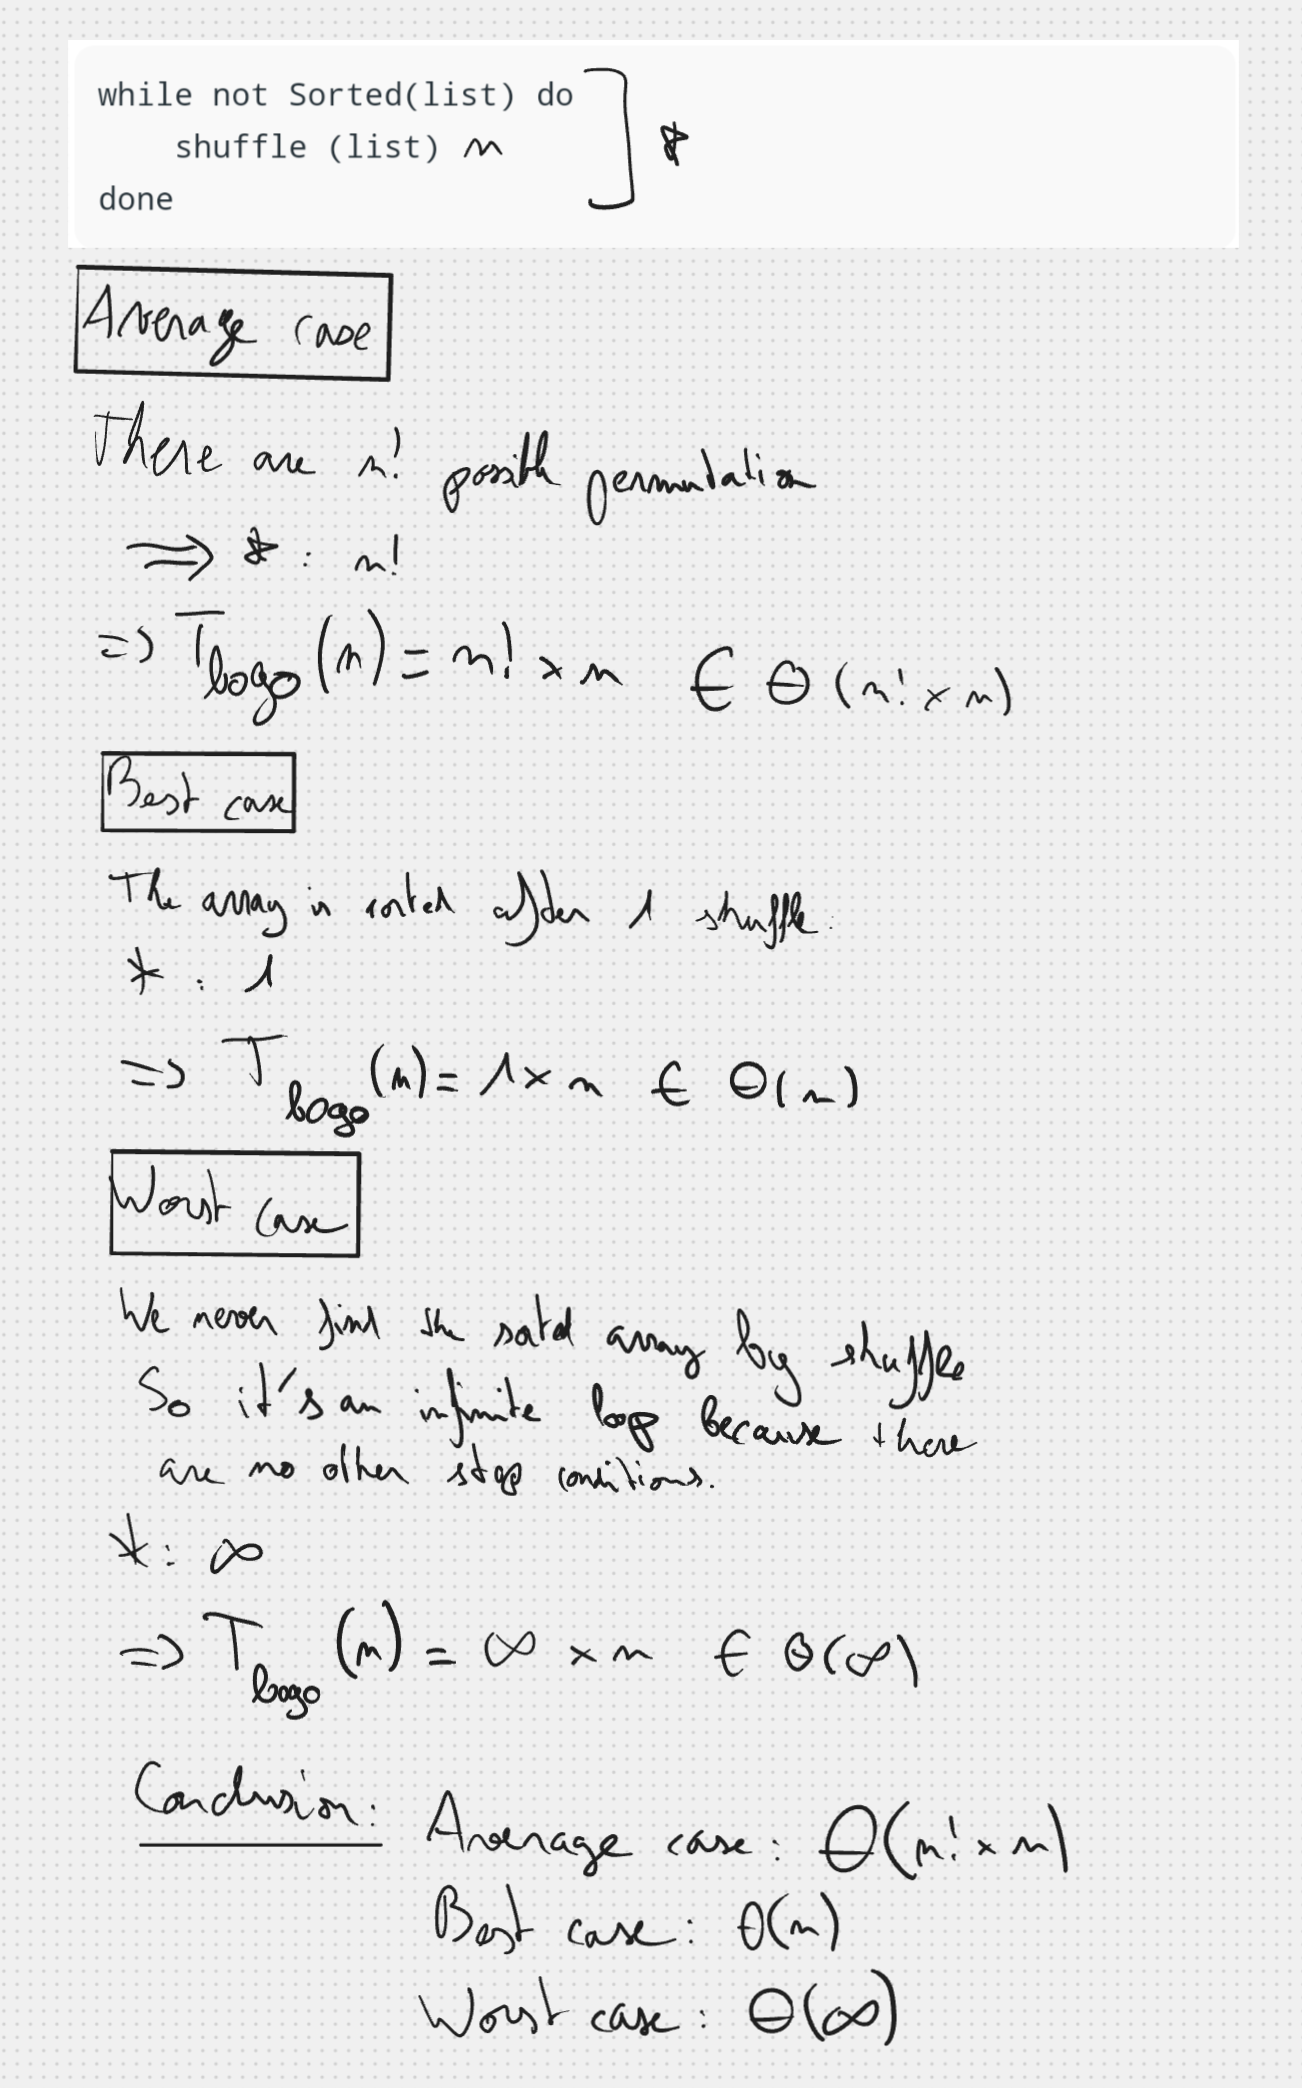 while not Sorted(list) do
shuffle (list) n
done
] *
Average case
There are n! possible permutation
⇒ * : n!
=> T bogo (n) = n! × n ∈ Θ (n! × n)
Best case
The array is sorted after 1 shuffle.
* : 1
=> T bogo (n) = 1 × n ∈ Θ(n)
Worst case
We never find the sorted array by shuffle
So it's an infinite loop because there
are no other stop conditions.
* : ∞
=> T bogo (n) = ∞ × n ∈ Θ(∞)
Conclusion: Average case : Θ(n! × n)
Best case : Θ(n)
Worst case : Θ(∞)